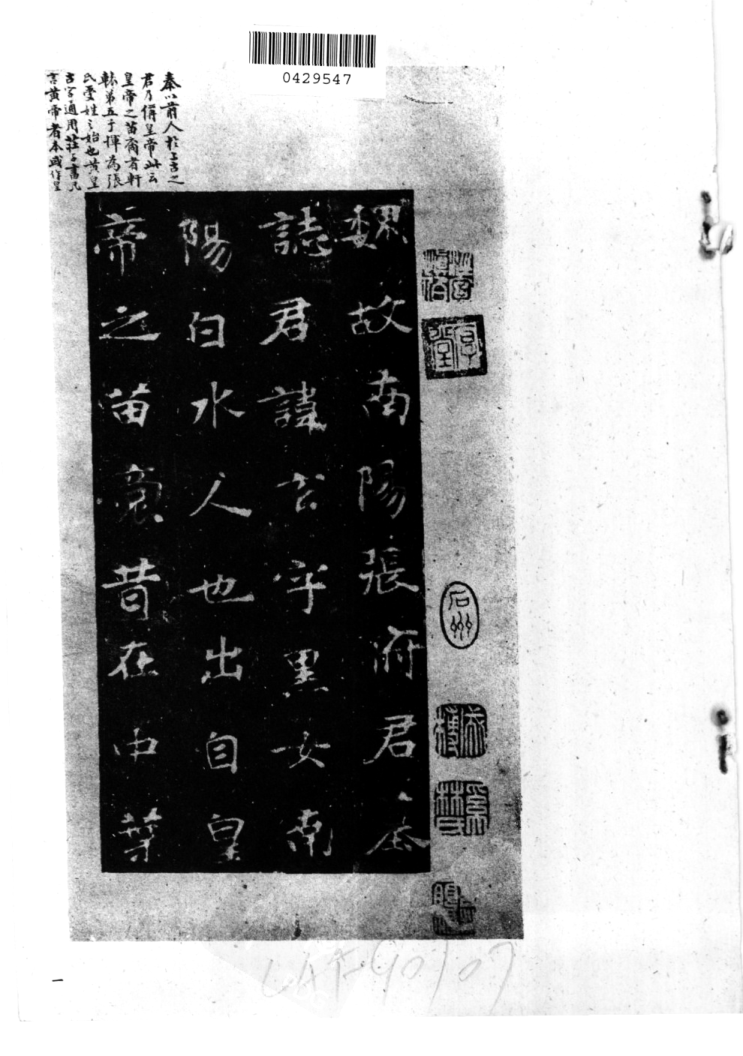 0429547
石州
魏故南陽張府君墓
誌君諱玄字黑女南
陽白水人也出自皇
帝之苗裔昔在中葉
秦以前人於上古之
君乃偁皇帝此云
皇帝之苗裔者軒
轅弟五子揮為張
氏受姓之始也黃皇
古字通用莊子書凡
言黃帝者本或作皇
一